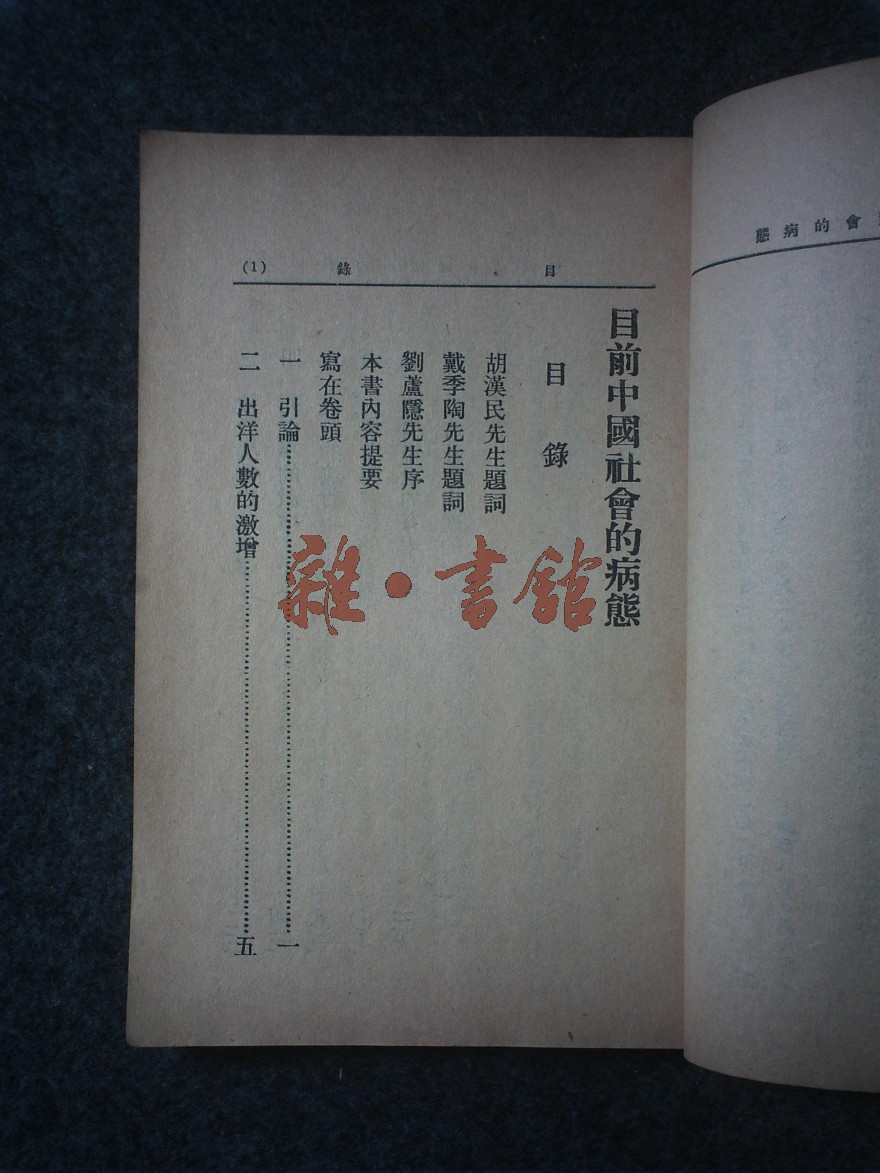 會的病態
目錄
(1)
目前中國社會的病態
目錄
胡漢民先生題詞
戴季陶先生題詞
劉蘆隱先生序
本書內容提要
寫在卷頭
一 引論……一
二 出洋人數的激增……五
雜·書館